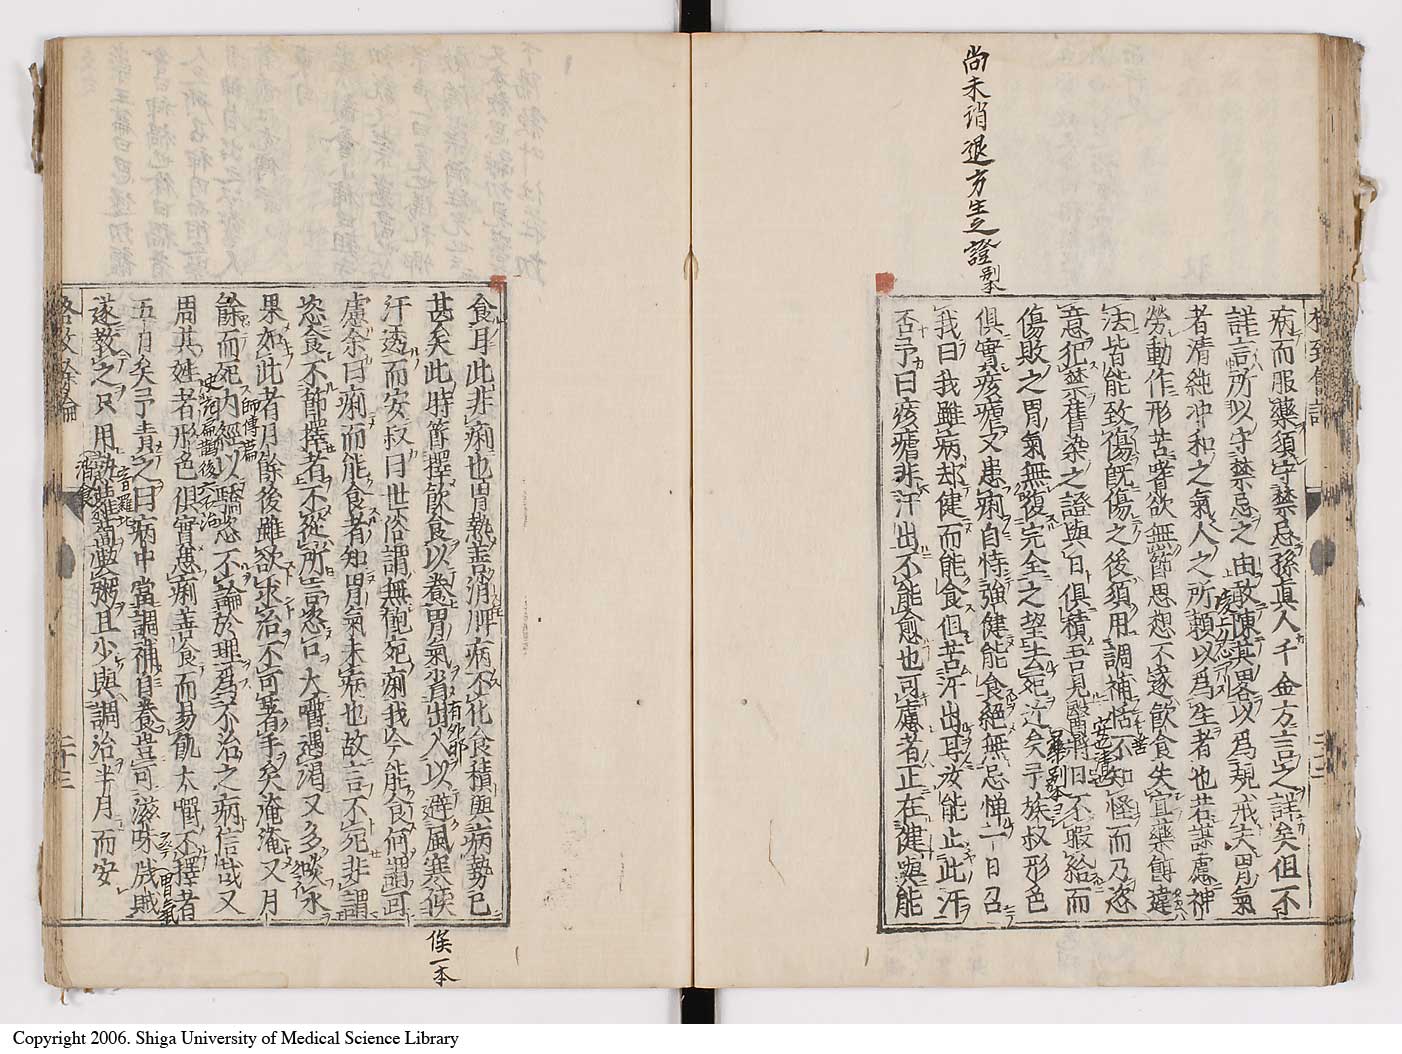 尚未消退方生之證 別本
病而服藥須守禁忌孫眞人千金方言之詳矣但不
詳言所以守禁忌之由敢陳其畧以爲規戒夫胃氣
者清純冲和之氣人之所賴以爲生者也若謀慮神
勞動作形苦嗜欲無節思想不遂飮食失宜藥餌違
法皆能致傷旣傷之後須用調補恬不知怪而乃恣
意犯禁舊染之證與日俱積吾見醫將日不暇給而
傷敗之胃氣無復完全之望去死近矣予族叔形色
俱實痎瘧又患痢自恃強健能食絕無忌憚一日召
我曰我雖病却健而能食但苦汗出耳汝能止此汗
否予曰痎瘧非汗出不能愈也可慮者正在健與能
食耳此非痢也胃熱善消脾病不化食積與病勢已
甚矣此時節擇飮食以養胃氣省出入以避風寒候
汗透而安叔曰世俗謂無飽死痢我今能食何謂可
慮余曰痢而能食者知胃氣未病也故言不死非謂
恣食不節擇者不從所言恣口大嚼遇渴又多啖水
果如此者月餘後雖欲求治不可著手矣淹淹又月
餘而死內經以驕恣不論於理爲不治之病信哉又
周其姓者形色俱實患痢善食而易飢大嚼不擇者
五日矣予責之曰病中當調補自養豈可滋味戕賊
遂敎之只用熟蘿蔔喫粥且少與調治半月而安
師傳篇
消食
胃氣
候一本
格致餘論
二十三
Copyright 2006. Shiga University of Medical Science Library